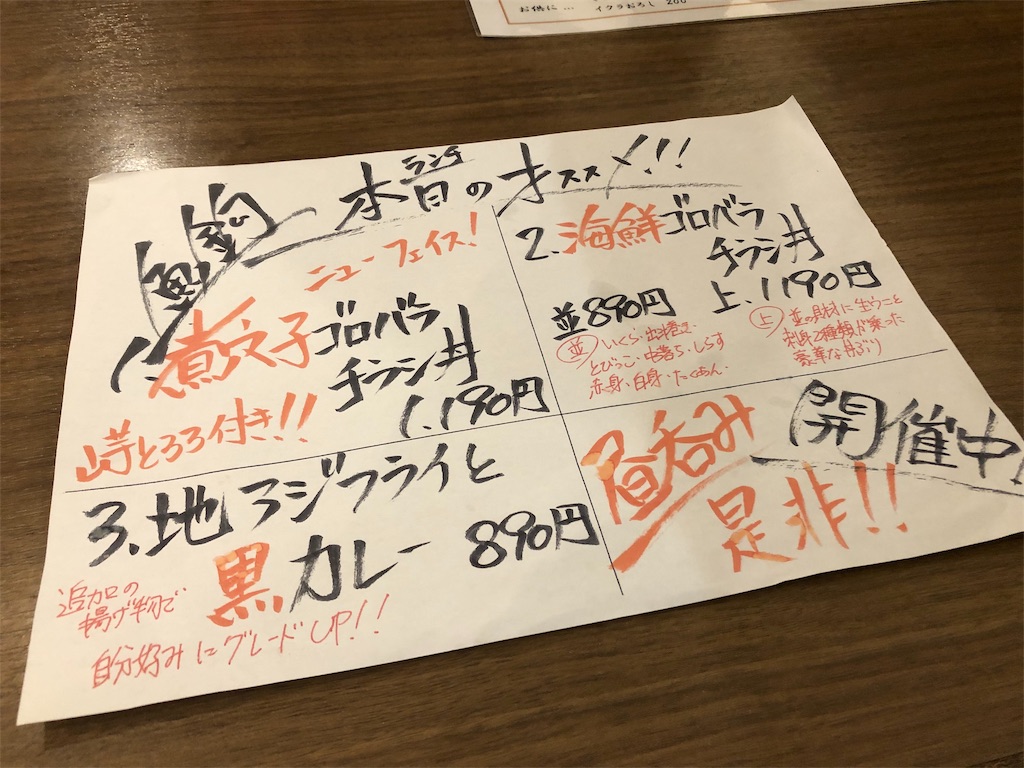 お供に… イクラおろし 200
本日のオススメ!!
ランチ
ニューフェイス!
1.煮穴子ゴロバラ
チラシ丼
山芋とろろ付き!! 1.190円
2.海鮮ゴロバラ
チラシ丼
並890円 上.1190円
並 いくら・出汁巻き・
とびっこ・中落ち・しらす
赤身・白身・たくあん・
上 並の具材に生うにと
刺身2種類が乗った
豪華な丼ぶり
3.地アジフライと
黒カレー 890円
追加の
揚げ物で
自分好みにグレードUP!!
昼呑み開催中!
是非!!